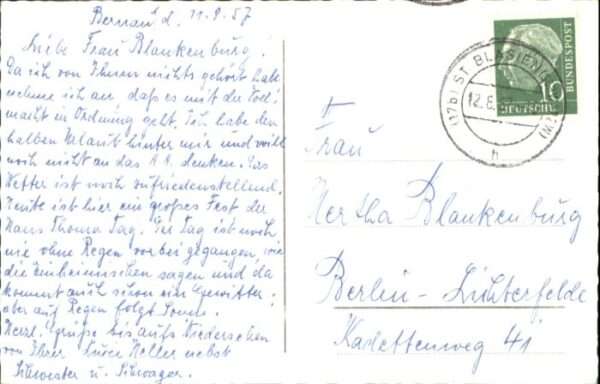 Bernau d. 11.8.57
Liebe Frau Blankenburg!
Da ich von Ihnen nichts gehört habe
nehme ich an, daß es mit die Voll-
macht in Ordnung geht. Ich habe den
halben Urlaub hinter mir und will
noch nicht an das denken. Das
Wetter ist noch zufriedenstellend.
Heute ist hier ein großes Fest der
Hans Thoma Tag. Der Tag ist noch
nie ohne Regen vorbei gegangen, wie
die Einheimischen sagen und da
kommt auch schon ein Gewitter;
aber auf Regen folgt Sonne.
Herzl. Grüße bis aufs Wiedersehen
von Ihrer Heller nebst
Schwester u. Schwager.
Frau
Hertha Blankenburg
Berlin-Lichterfelde
Kadettenweg 41
(17b) ST BLASIEN
12.8.
h
10
DEUTSCHE
BUNDESPOST